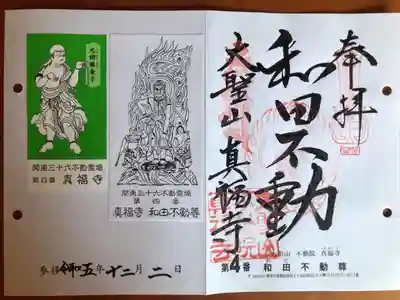 奉拝
和田不動
大聖山 真福寺
第4番 和田不動尊
不動院 真福寺
関東三十六不動霊場
第四番 真福寺
関東三十六不動霊場
第四番
真福寺 和田不動尊
参拝 令和五年 十二月 二日